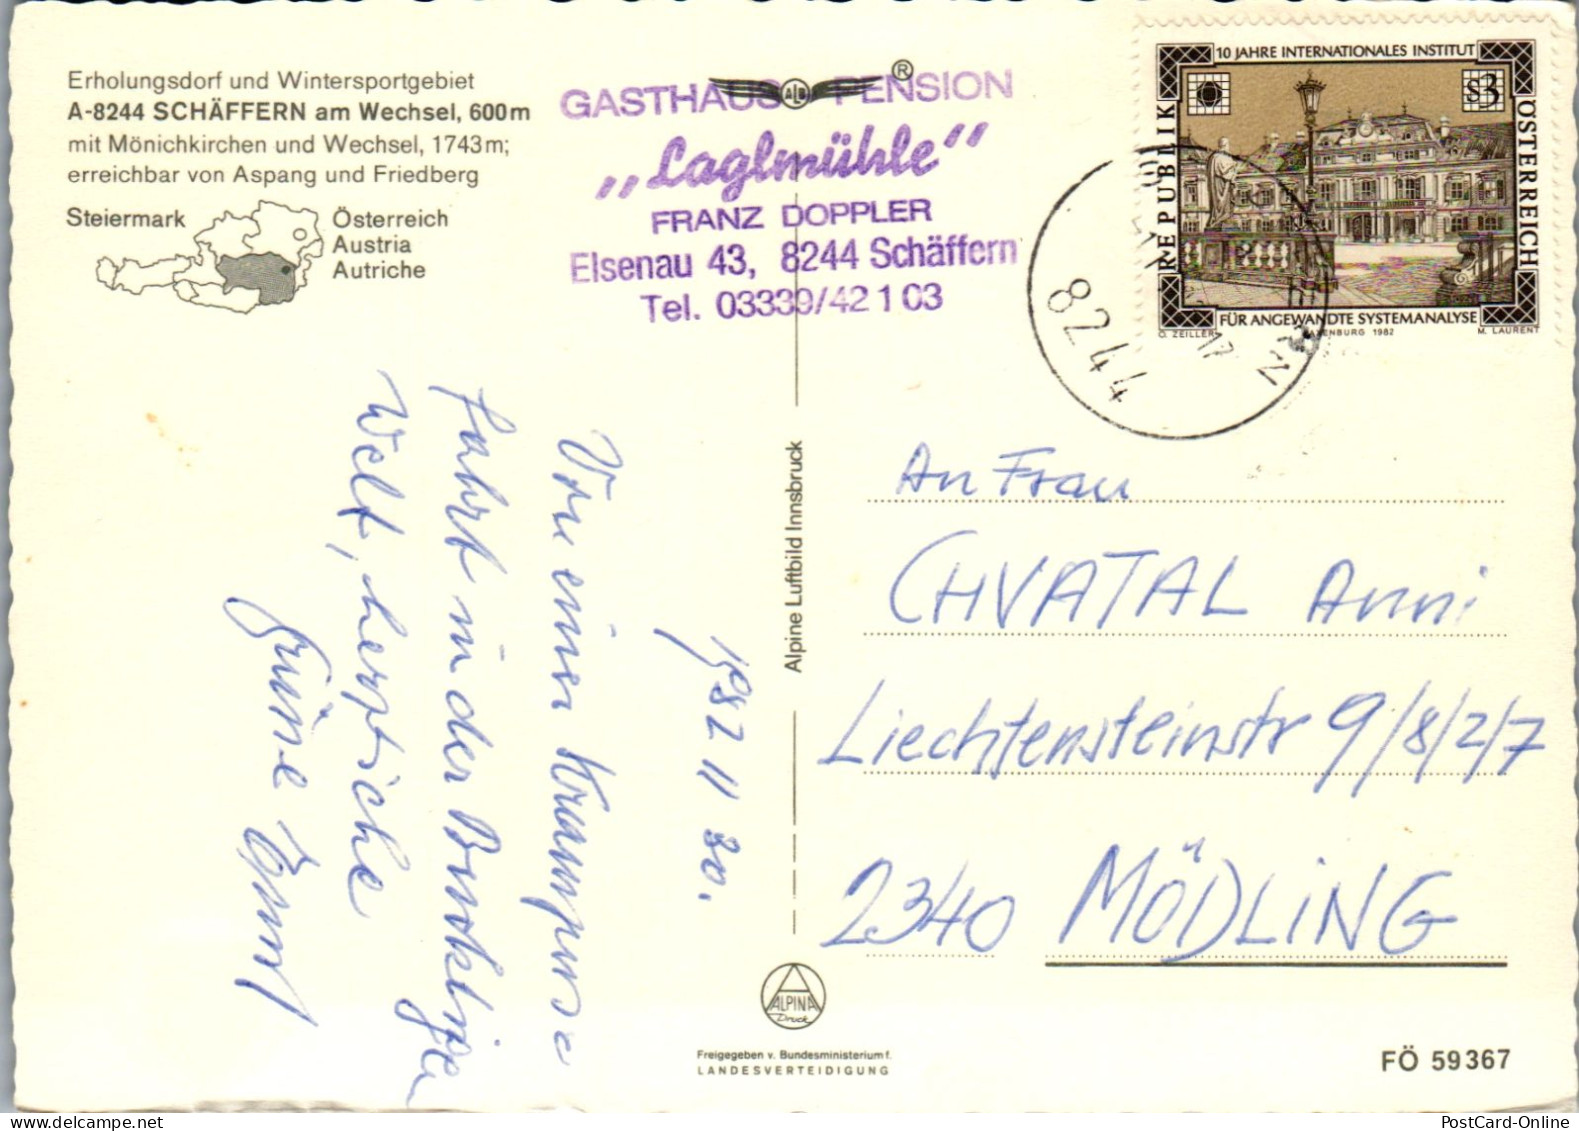 Erholungsdorf und Wintersportgebiet
A-8244 SCHÄFFERN am Wechsel, 600m
mit Mönichkirchen und Wechsel, 1743m;
erreichbar von Aspang und Friedberg
Steiermark
Österreich
Austria
Autriche
ALB ®
GASTHAUS PENSION
„Laglmühle“
FRANZ DOPPLER
Elsenau 43, 8244 Schäffern
Tel. 03339/42 1 03
10 JAHRE INTERNATIONALES INSTITUT
S3
REPUBLIK
ÖSTERREICH
FÜR ANGEWANDTE SYSTEMANALYSE
O. ZEILLER LAXENBURG 1982 M. LAURENT
8244
1982 11 30.
Von einer
fahrt in der Buckligen
Welt, herzliche
Grüße Ernst
Alpine Luftbild Innsbruck
An Frau
CHVATAL Anni
Liechtensteinstr 9/8/2/7
2340 MÖDLING
ALPINA
Druck
Freigegeben v. Bundesministerium f.
LANDESVERTEIDIGUNG
FÖ 59367
PostCard-Online.com
PostCard-Online